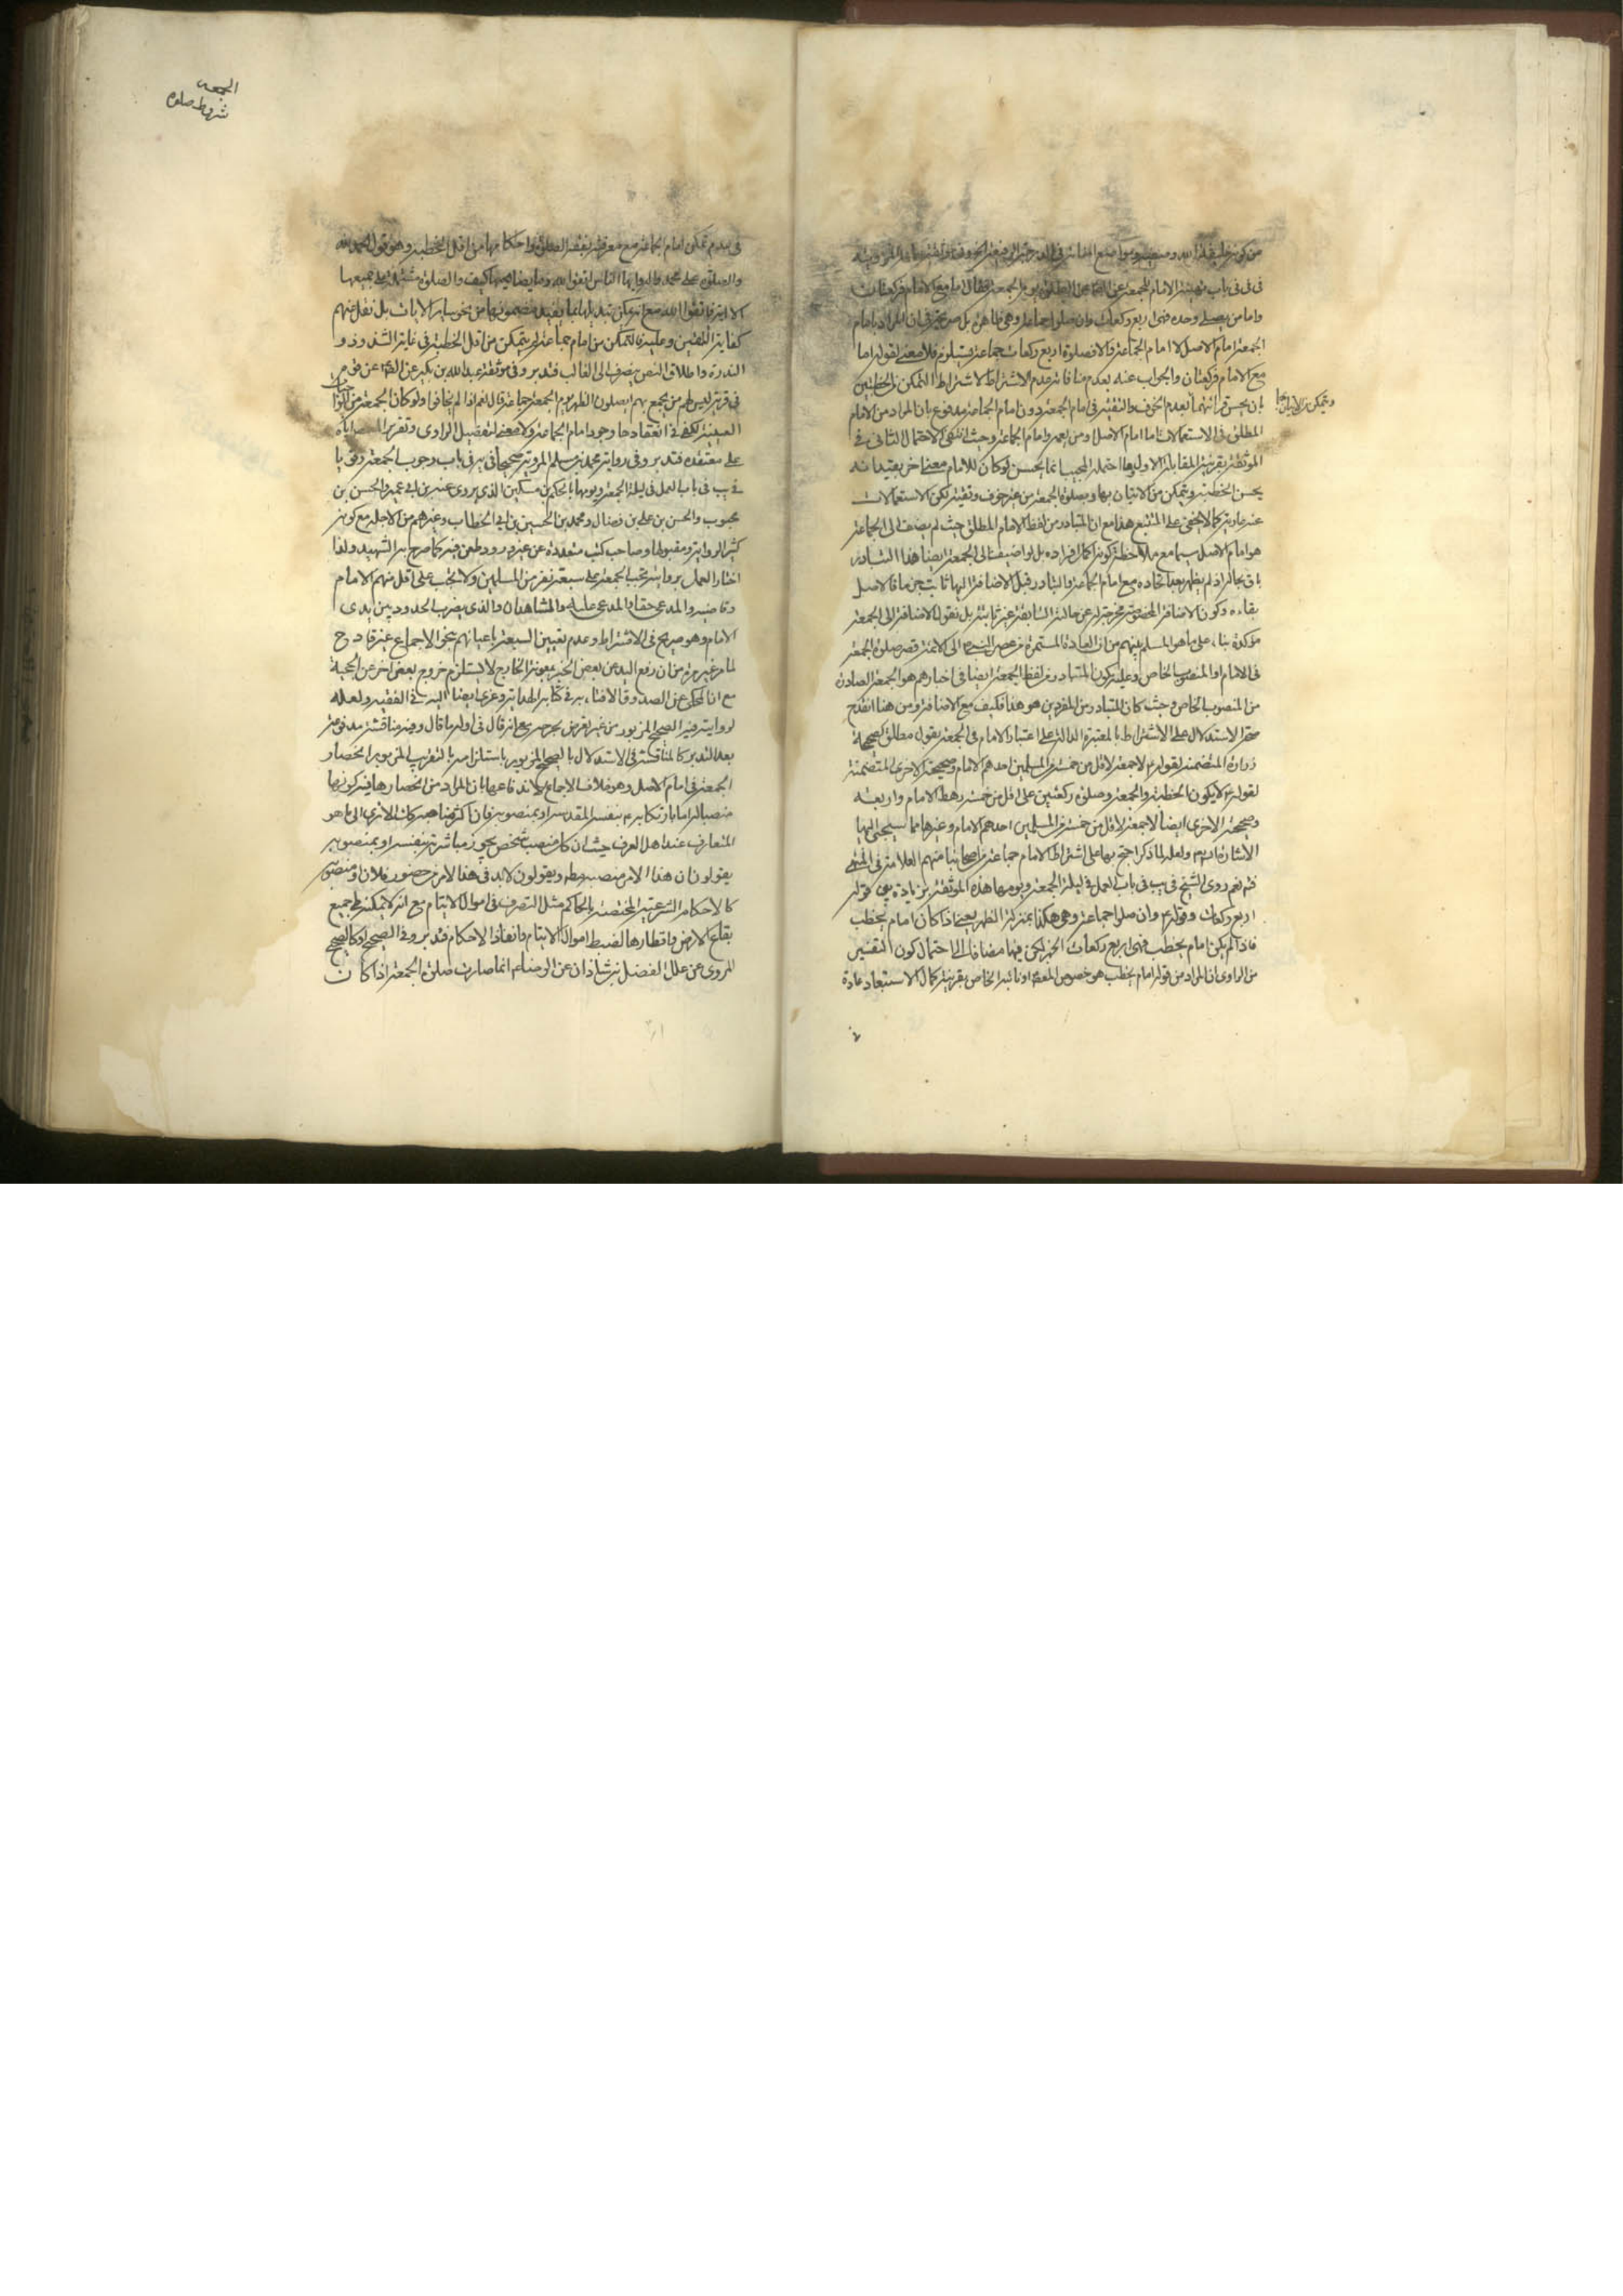 في في باب تهيئة الامام للجمعة عن الصلوة يوم الجمعة فقال اما مع الامام فركعتان
واما من يصلى وحده فهى اربع ركعات وان صلوا جماعة وهى ظاهرة بل صريحة في ان المراد بامام
الجمعة امام الاصل لا امام الجماعة والا فصلوة اربع ركعات جماعة يستلزم فلا معنى لقوله اما
مع الامام فركعتان والجواب عنه بعدم منافاته عدم الاشتراط لاشتراط التمكن من الخطبتين
بان يحسن قرائتهما بعدم الخوف والتقية في امام الجمعة دون امام الجماعة مدفوع بان المراد من الامام
ويتمكن من الاتيان بها
المطلق في الاستعمالات اما امام الاصل او من يعمه وامام الجماعة وحيث انتفى الاحتمال الثانى في
الموثقة بقرينة المقابلة الاولى وما احتمله المجيب انما يحسن لو كان للامام معنى اخر يقيد بانه
يحسن الخطبة ويتمكن من الاتيان بها وبصلوة الجمعة من غير خوف وتقية لكن الاستعمالات
عنه عارية كما لا يخفى على المتتبع هذا مع ان المتبادر من لفظ الامام المطلق حيث لم يضف الى الجماعة
هو امام الاصل سيما مع ملاحظة كونه اكمل افراده بل لو اضيفت الى الجمعة ايضا هذا التبادر
باق بحاله اذ لم يظهر بعد اتحاده مع امام الجماعة والتبادر قبل الاضافة اليها ثابت جزما فالاصل
بقاءه وكون الاضافة المحضة مخرجة له عن حالته السابقة غير ثابتة بل نقول الاضافة الى الجمعة
مؤكدة بناء على ما هو المسلم بينهم من ان العادة المستمرة من عصر النبى ص الى الائمة قصر صلوة الجمعة
في الامام او المنصوب الخاص وعليه كون المتبادر من لفظ الجمعة ايضا في اخبارهم هو الجمعة الصادرة
من المنصوب الخاص وحيث كان المتبادر من المفردين هو هذا فكيف مع الاضافة ومن هنا انقدح
صحة الاستدلال على الاشتراط بالمعتبرة الدالة على اعتبار الامام في الجمعة بقول مطلق كصحيحة
زرارة المتضمنة لقوله ع لا جمعة لاقل من خمسة من المسلمين احدهم الامام وصحيحته الاخرى المتضمنة
لقوله ع لا يكون الخطبة والجمعة وصلوة ركعتين على اقل من خمسة رهط الامام واربعة
وصحيحته الاخرى ايضا لا جمعة لاقل من خمسة من المسلمين احدهم الامام وغيرها مما سيجئ اليها
الاشارة ان شاء الله ولعله لما ذكر احتج بها على اشتراط الامام جماعة من اصحابنا منهم العلامة في المنتهى
نعم روى الشيخ في يب في باب العمل في ليلة الجمعة ويومها هذه الموثقة بزيادة بين قوله
اربع ركعات وقوله ع وان صلوا جماعة وهى هكذا بمنزلة الظهر يعنى اذا كان امام يخطب
فاذا لم يكن امام يخطب فهى اربع ركعات الخبر لكن فيها مضافا الى احتمال كون التفسير
من الراوى ان المراد من قوله امام يخطب هو خصوص المعصوم او نائبه الخاص بقرينة كمال الاستبعاد عادة
الجمعه
شروط صلوة
في عدم تمكن امام الجماعة مع معرفته بفقه الصلوة واحكامها من اقل الخطبة وهو قول الحمد لله
والصلوة على محمد واله يا ايها الناس اتقوا الله وما يضاهيها كيف والصلوة مشتملة على جميعها
الا اية فاتقوا الله مع انه يمكن تبديلها بما يفيد مضمونها من نحو ساير الايات بل نقل عنهم
كفاية اللفتين وعليه فالتمكن من امام جماعة لم يتمكن من اقل الخطبة في غاية الشذوذ و
الندرة واطلاق النص ينصرف الى الغالب فتدبر وفى موثقة عبد الله بن بكير عن الصادق ع عن قوم
في قرية ليس لهم من يجمع بهم ايصلون الظهر يوم الجمعة جماعة قال نعم اذا لم يخافوا ولو كان الجمعة من الواجبات
العينية لكفى في انعقادها وجود امام الجماعة ولا معنى لتفصيل الراوى وتقرير المعصوم اياه
على معتقده فتدبر وفى رواية محمد بن مسلم المروية صحيحا في يه في باب وجوب الجمعة وفى يا
في يب في باب العمل في ليلة الجمعة ويومها بالحكم بن مسكين الذى يروى عنه بن ابى عمير والحسن بن
محبوب والحسن بن على بن فضال ومحمد بن الحسين بن ابى الخطاب وغيرهم من الاجلة مع كونه
كثير الرواية ومقبولها وصاحب كتب متعددة عن غير ورود طعن فيه كما صرح به الشهيد ولذا
اختار العمل بروايته تجب الجمعة على سبعة نفر من المسلمين ولا تجب على اقل منهم الامام
وقاضيه والمدعى حقا والمدعى عليه والشاهدان والذى يضرب الحدود بين يدى
الامام وهو صريح في الاشتراط وعدم تعيين السبعة باعيانهم بنحو الاجماع غير قادح
لما مر غير مرة من ان رفع اليد عن بعض الخبر بمعونة الخارج لا يستلزم خروج بعض اخر عن الحجية
مع ان المحكى عن الصدوق الافتاء به في كتابه الهداية وعزى ايضا اليه في الفقيه ولعله
لروايته فيه الصحيح المزبور من غير تعرض بجرحه مع انه قال في اوله ما قال وفيه مناقشة مدفوعة
بعد التدبر كالمناقشة في الاستدلال بالصحيح المزبور باستلزامه بالتقريب المزبور انحصار
الجمعة في امام الاصل وهو خلاف الاجماع لاندفاعها بان المراد من انحصارها فيه كونها
منصبا له اما بارتكابه ع بنفسه المقدسة او بمنصوبه فان اكثر مناصبه كان لا ترى الى ما هو
المتعارف عند اهل العرف حيث ان كل منصب شخص يجوز مباشرته بنفسه او بمنصوبه
يقولون ان هذا الامر منصبه ويقولون لابد في هذا الامر من حضور فلان او منصوبه
كالاحكام الشرعية المختصة بالحاكم مثل التصرف في اموال الايتام مع انه لا يمكنه طى جميع
بقاع الارض واقطارها لضبط اموال الايتام وانفاذ الاحكام فتدبر وفى الصحيح او كالصحيح
المروى عن علل الفضل بن شاذان عن الرضا ع انما صارت صلوة الجمعة اذا كان